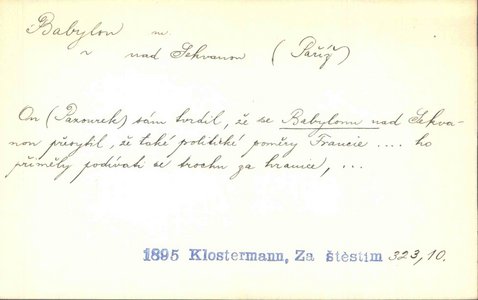 Babylon m.
~ nad Sekvanou (Paříž)
On (Pazourek) sám tvrdil, že se Babylonu nad Sekva-
nou přesytil, že také politické poměry Francie .... ho
přiměly podívati se trochu za hranice, ...
1895 Klostermann, Za štěstím 323,10.